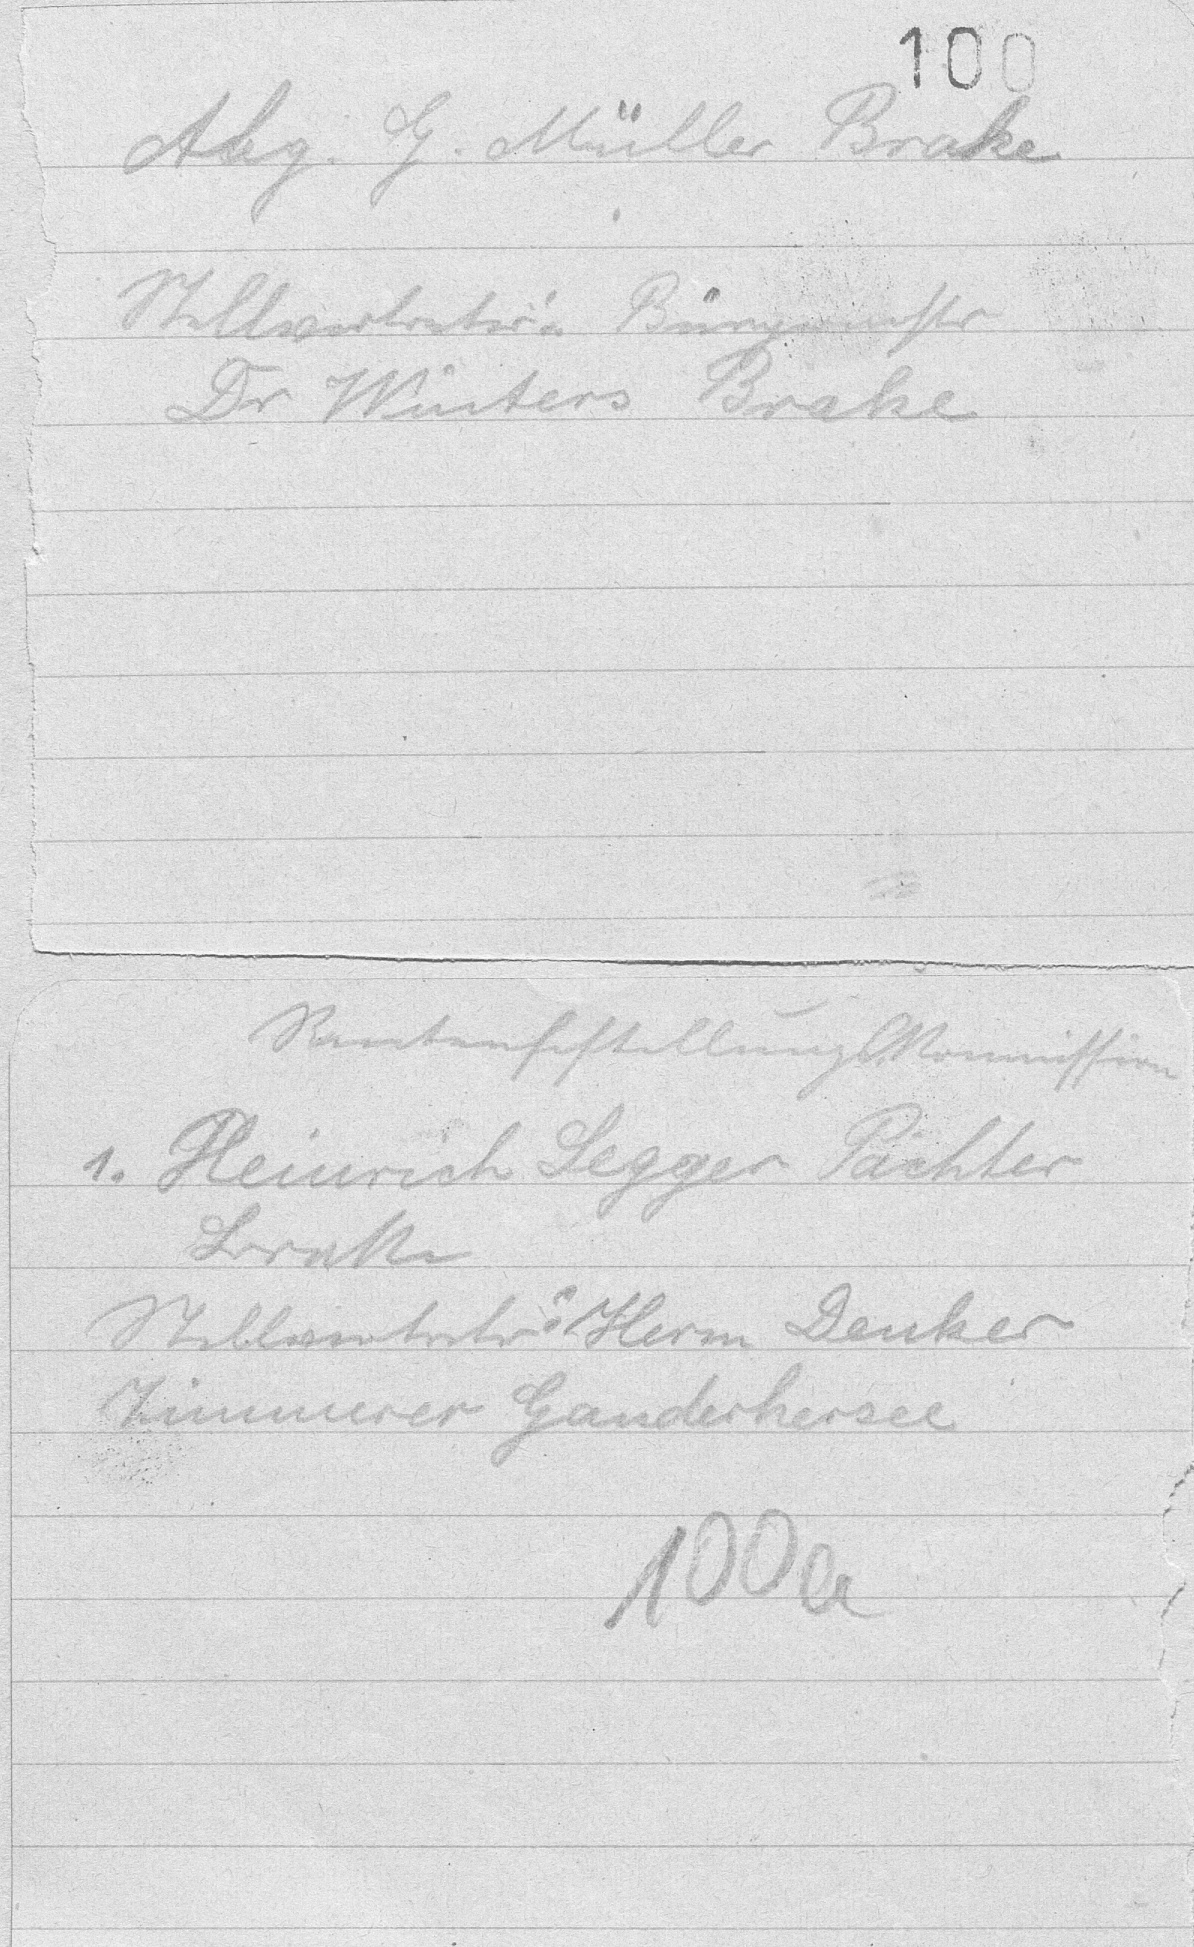 100
Abg. G. Müller Brake
Stellvertreter: Bürgermeister
Dr Winters Brake
Rentenfeststellungskommission
1. Heinrich Segger Pächter
Stellvertreter: Herm Denker
Zimmerer Ganderkersee
100a